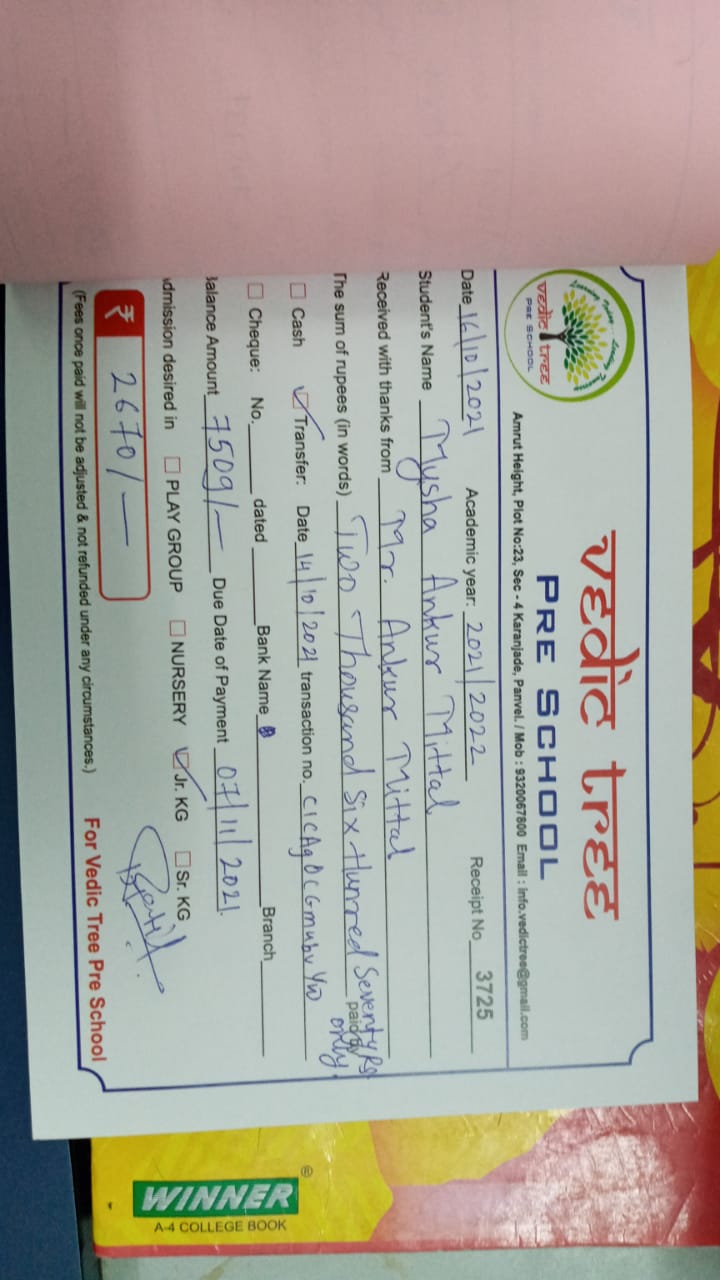 vedic tree
PRE SCHOOL
vedic tree
PRE SCHOOL
Amrut Height, Plot No:23, Sec - 4 Karanjade, Panvel. / Mob : 9320067800 Email : info.vedictree@gmail.com
Date 16/10/2021 Academic year: 2021/2022 Receipt No 3725
Student's Name Mysha Ankur Mittal
Received with thanks from Mr. Ankur Mittal
The sum of rupees (in words) Two Thousand Six Hunred Seventy Rs only. paid by
Cash Transfer: Date 14/10/2021 transaction no. CICAgOCGmubvYw
Cheque: No. dated Bank Name Branch
Balance Amount 7509/- Due Date of Payment 07/11/2021.
dmission desired in PLAY GROUP NURSERY Jr. KG Sr. KG
₹ 2670/-
(Fees once paid will not be adjusted & not refunded under any circumstances.) For Vedic Tree Pre School
WINNER ®
A-4 COLLEGE BOOK